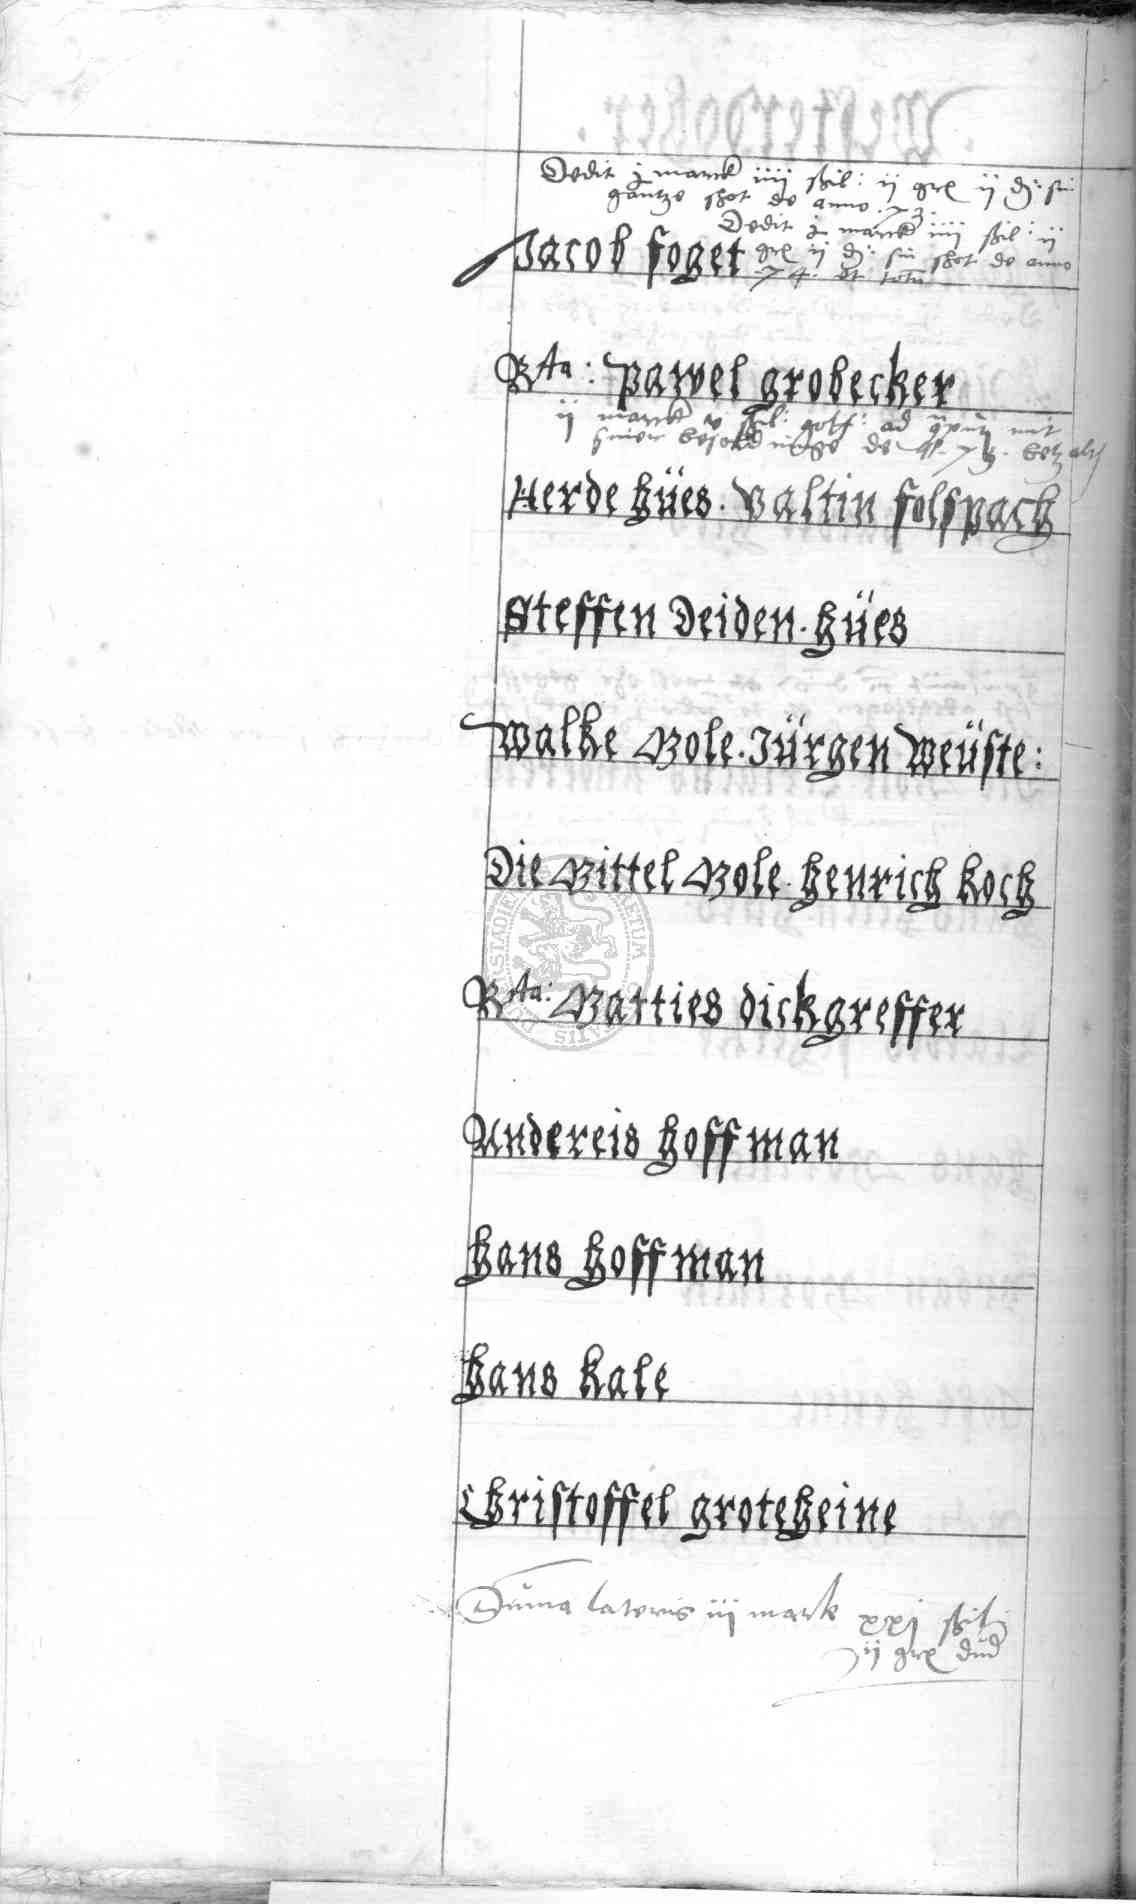 Dedit j marck iiii skil: ij grl ij d: sin
gantze shot de anno 73.
Dedit j marck iiii skil: ij
Jacob foget grl ij d: sin shot de anno
74. et totu
Rta: pawel grobecker
ij marck v skil: gotf: ad mit
siner besoldunge de betzalt
Herde hües. Valtin folspach
Steffen Deiden. hües
Walke Mole. Jürgen Weüste:
Die Mittel Mole. henrich koch
Rta: Matties dickgreffer
Andereis hoffman
hans hoffman
hans kale
Christoffel groteheine
Suma lateris iij mark xxj skil
ij grl